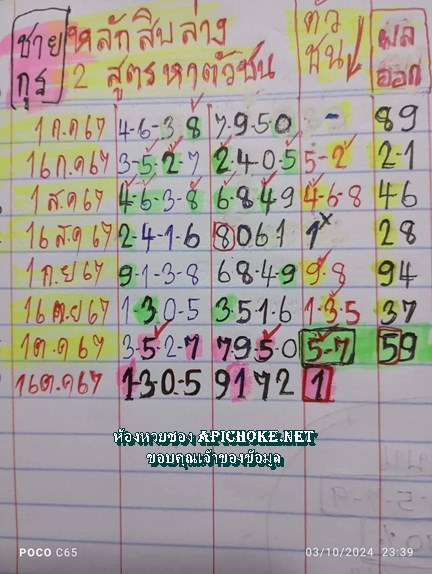 ชาย หลักสิบล่าง ตัว ผล
กูร 2 สูตรหาตัวชน ชน ออก
1 ก.ค 67 4-6-3-8 7-9-5-0 - 89
16 ก.ค 67 3-5-2-7 2-4-0-5 5-2 2-1
1 ส.ค 67 4-6-3-8 6-8-4-9 4-6-8 46
16 ส.ค 67 2-4-1-6 8061 1x 28
1 ก.ย 67 9-1-3-8 68-4-9 9-8 94
16 ก.ย 67 1-3-0-5 3-5-1-6 1-3-5 37
1 ต.ค 67 3-5-2-7 7-9-5-0 5-7 59
16 ต.ค 67 1-3-0-5 9172 1
ห้องหวยซอง APICHOKE.NET
ขอบคุณเจ้าของข้อมูล
POCO C65 03/10/2024 23:39